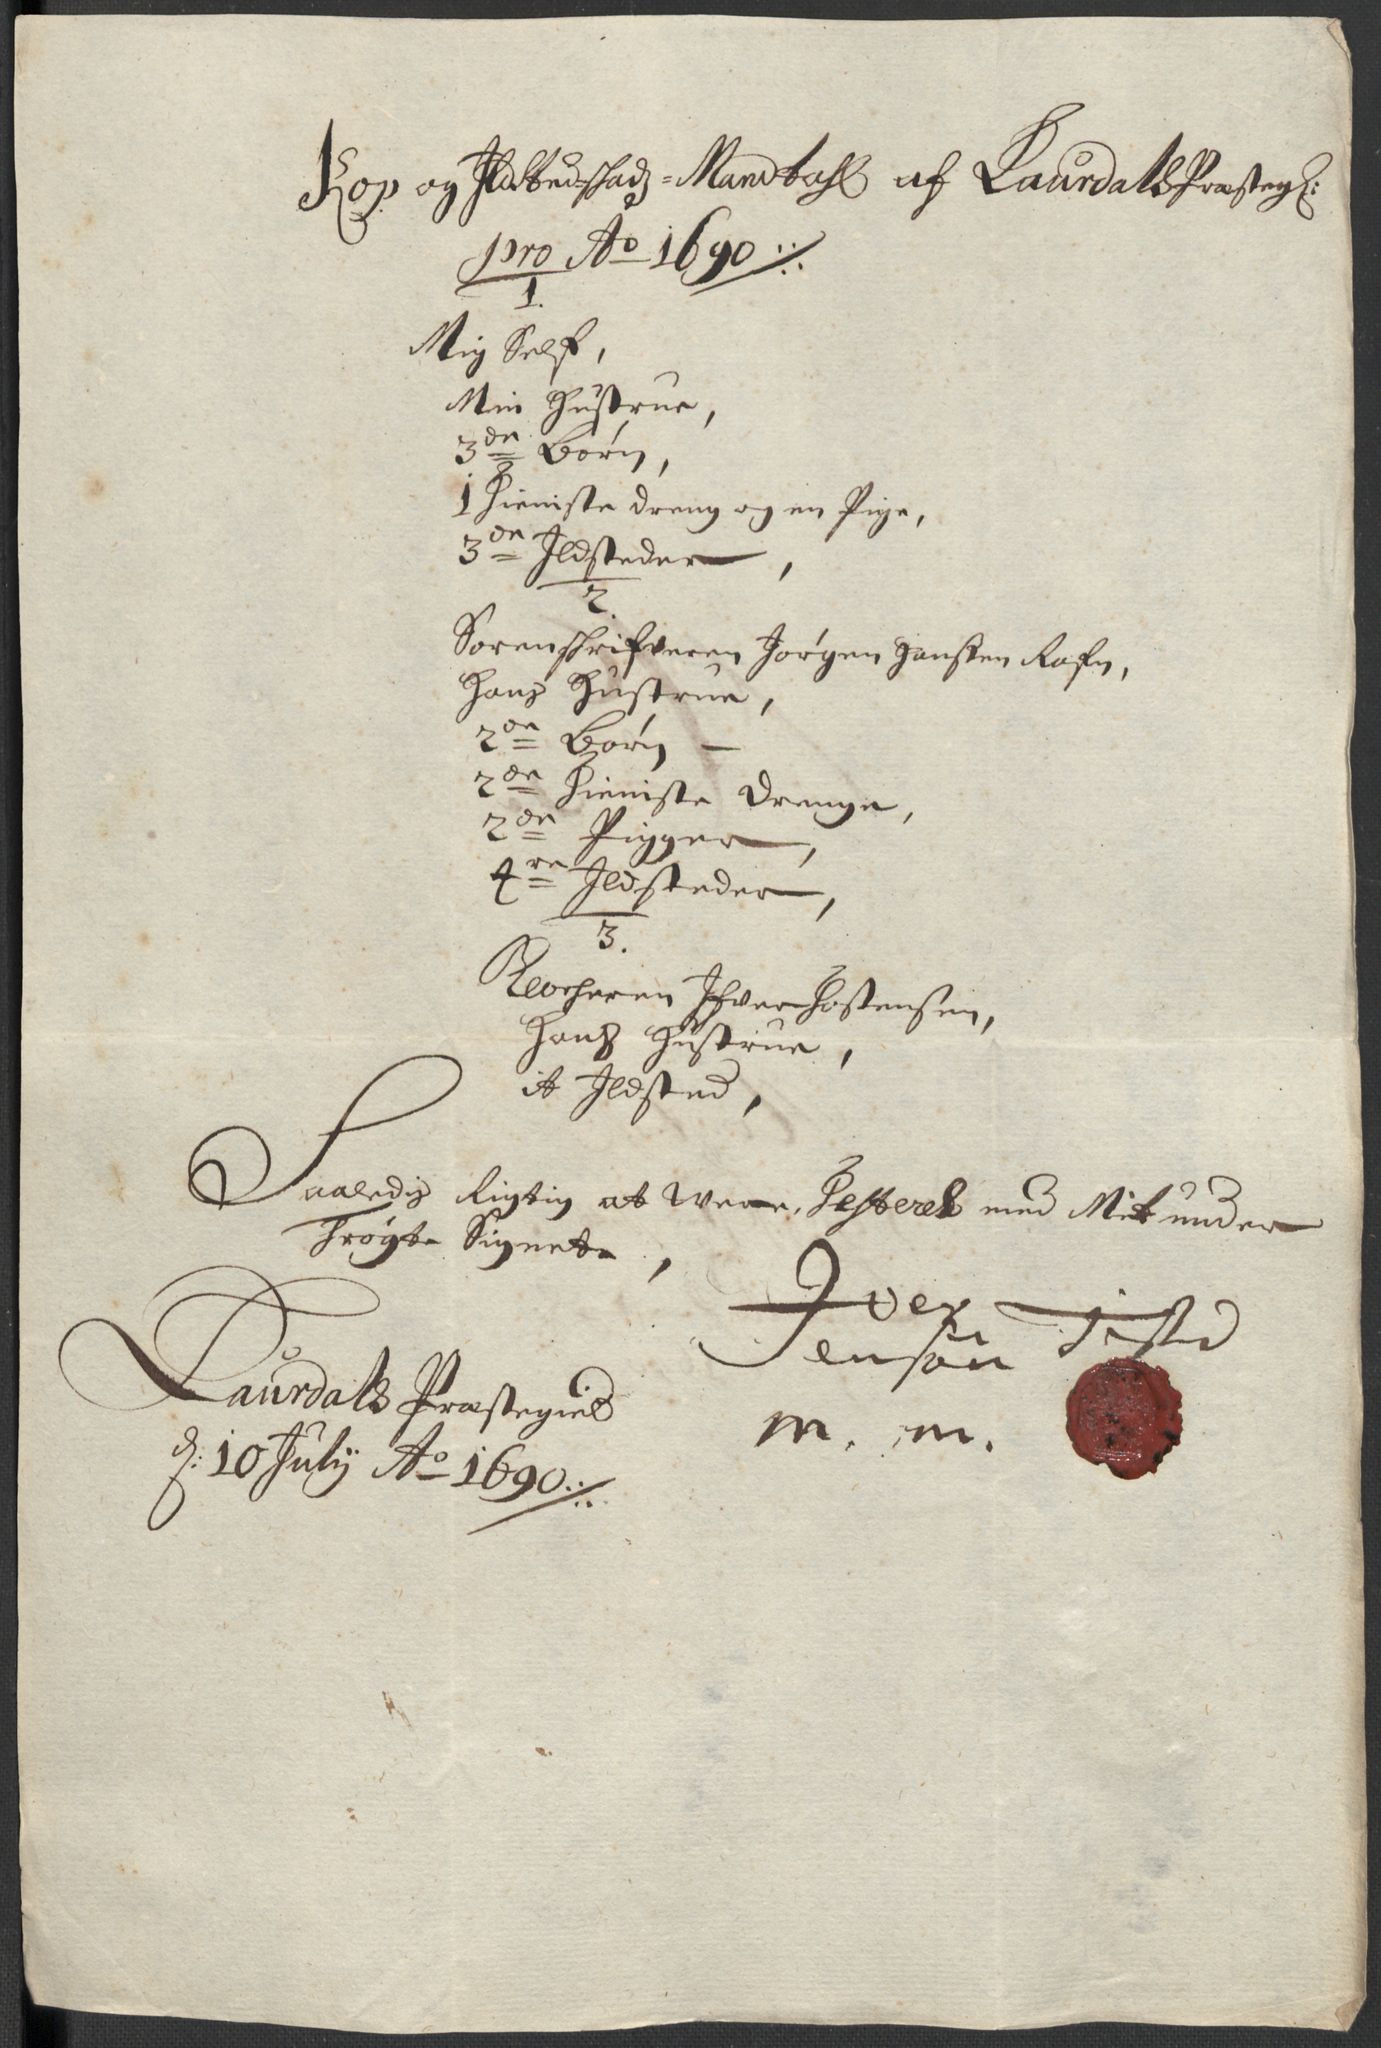 Kop og Ildsted-schadz-Mandtahl af Laurdals Præstegl:
pro Ao 1690
1.
Mig Self,
Min Hustrue,
3de Børn,
1 tieniste dreng og en Pige,
3de Ildsteder,
2.
Sorenschrifveren Jørgen Hansten Rafn,
Hanß Hustrue,
2de Børn
2de tieniste Drenge,
2de Pigger,
4re Ildsteder,
3.
Klocheren Ifver Tostensen,
Hanß Hustrue,
it Ildsted,
Saaledis Rigtig at were, Testerer med Mit under
Trøgte Signete,
Iver
Jensøn
m. m.
Laurdals Præstegield
d: 10 July Ao 1690